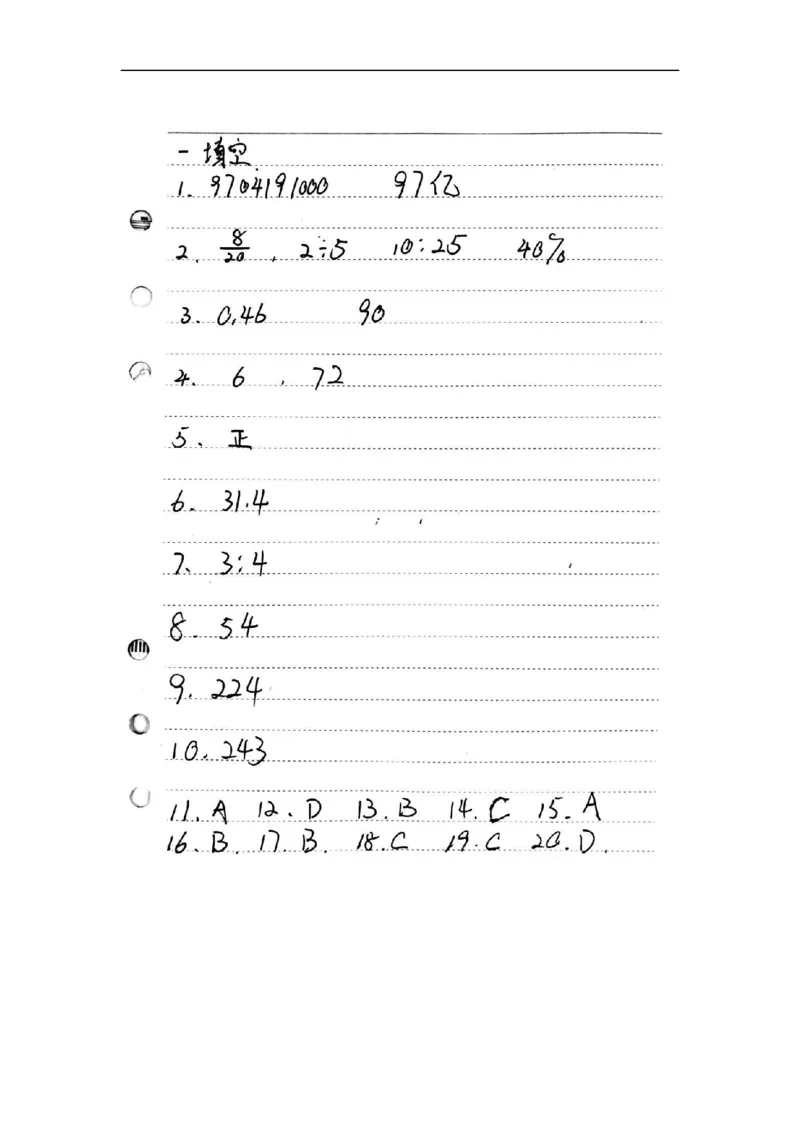 一 填空
1. 9704191000 97亿
2. 8/20 , 2÷5 10:25 40%
3. 0.46 90
4. 6 , 72
5. 正
6. 31.4
7. 3:4
8. 54
9. 224
10. 243
11. A 12. D 13. B 14. C 15. A
16. B. 17. B. 18. C 19. C 20. D.